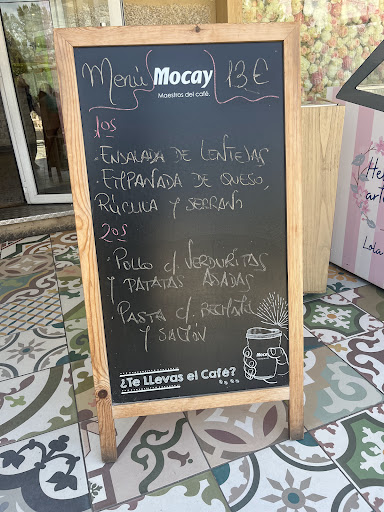 Menú Mocay 13€
Maestros del café.
1os
· Ensalada de lentejas
· Empanada de queso,
rúcula y serrano
2os
· Pollo c/ verduritas
y patatas asadas
· Pasta c/ bechamel
y salmón
¿Te LLevas el Café?
Mocay
He
art
Lola